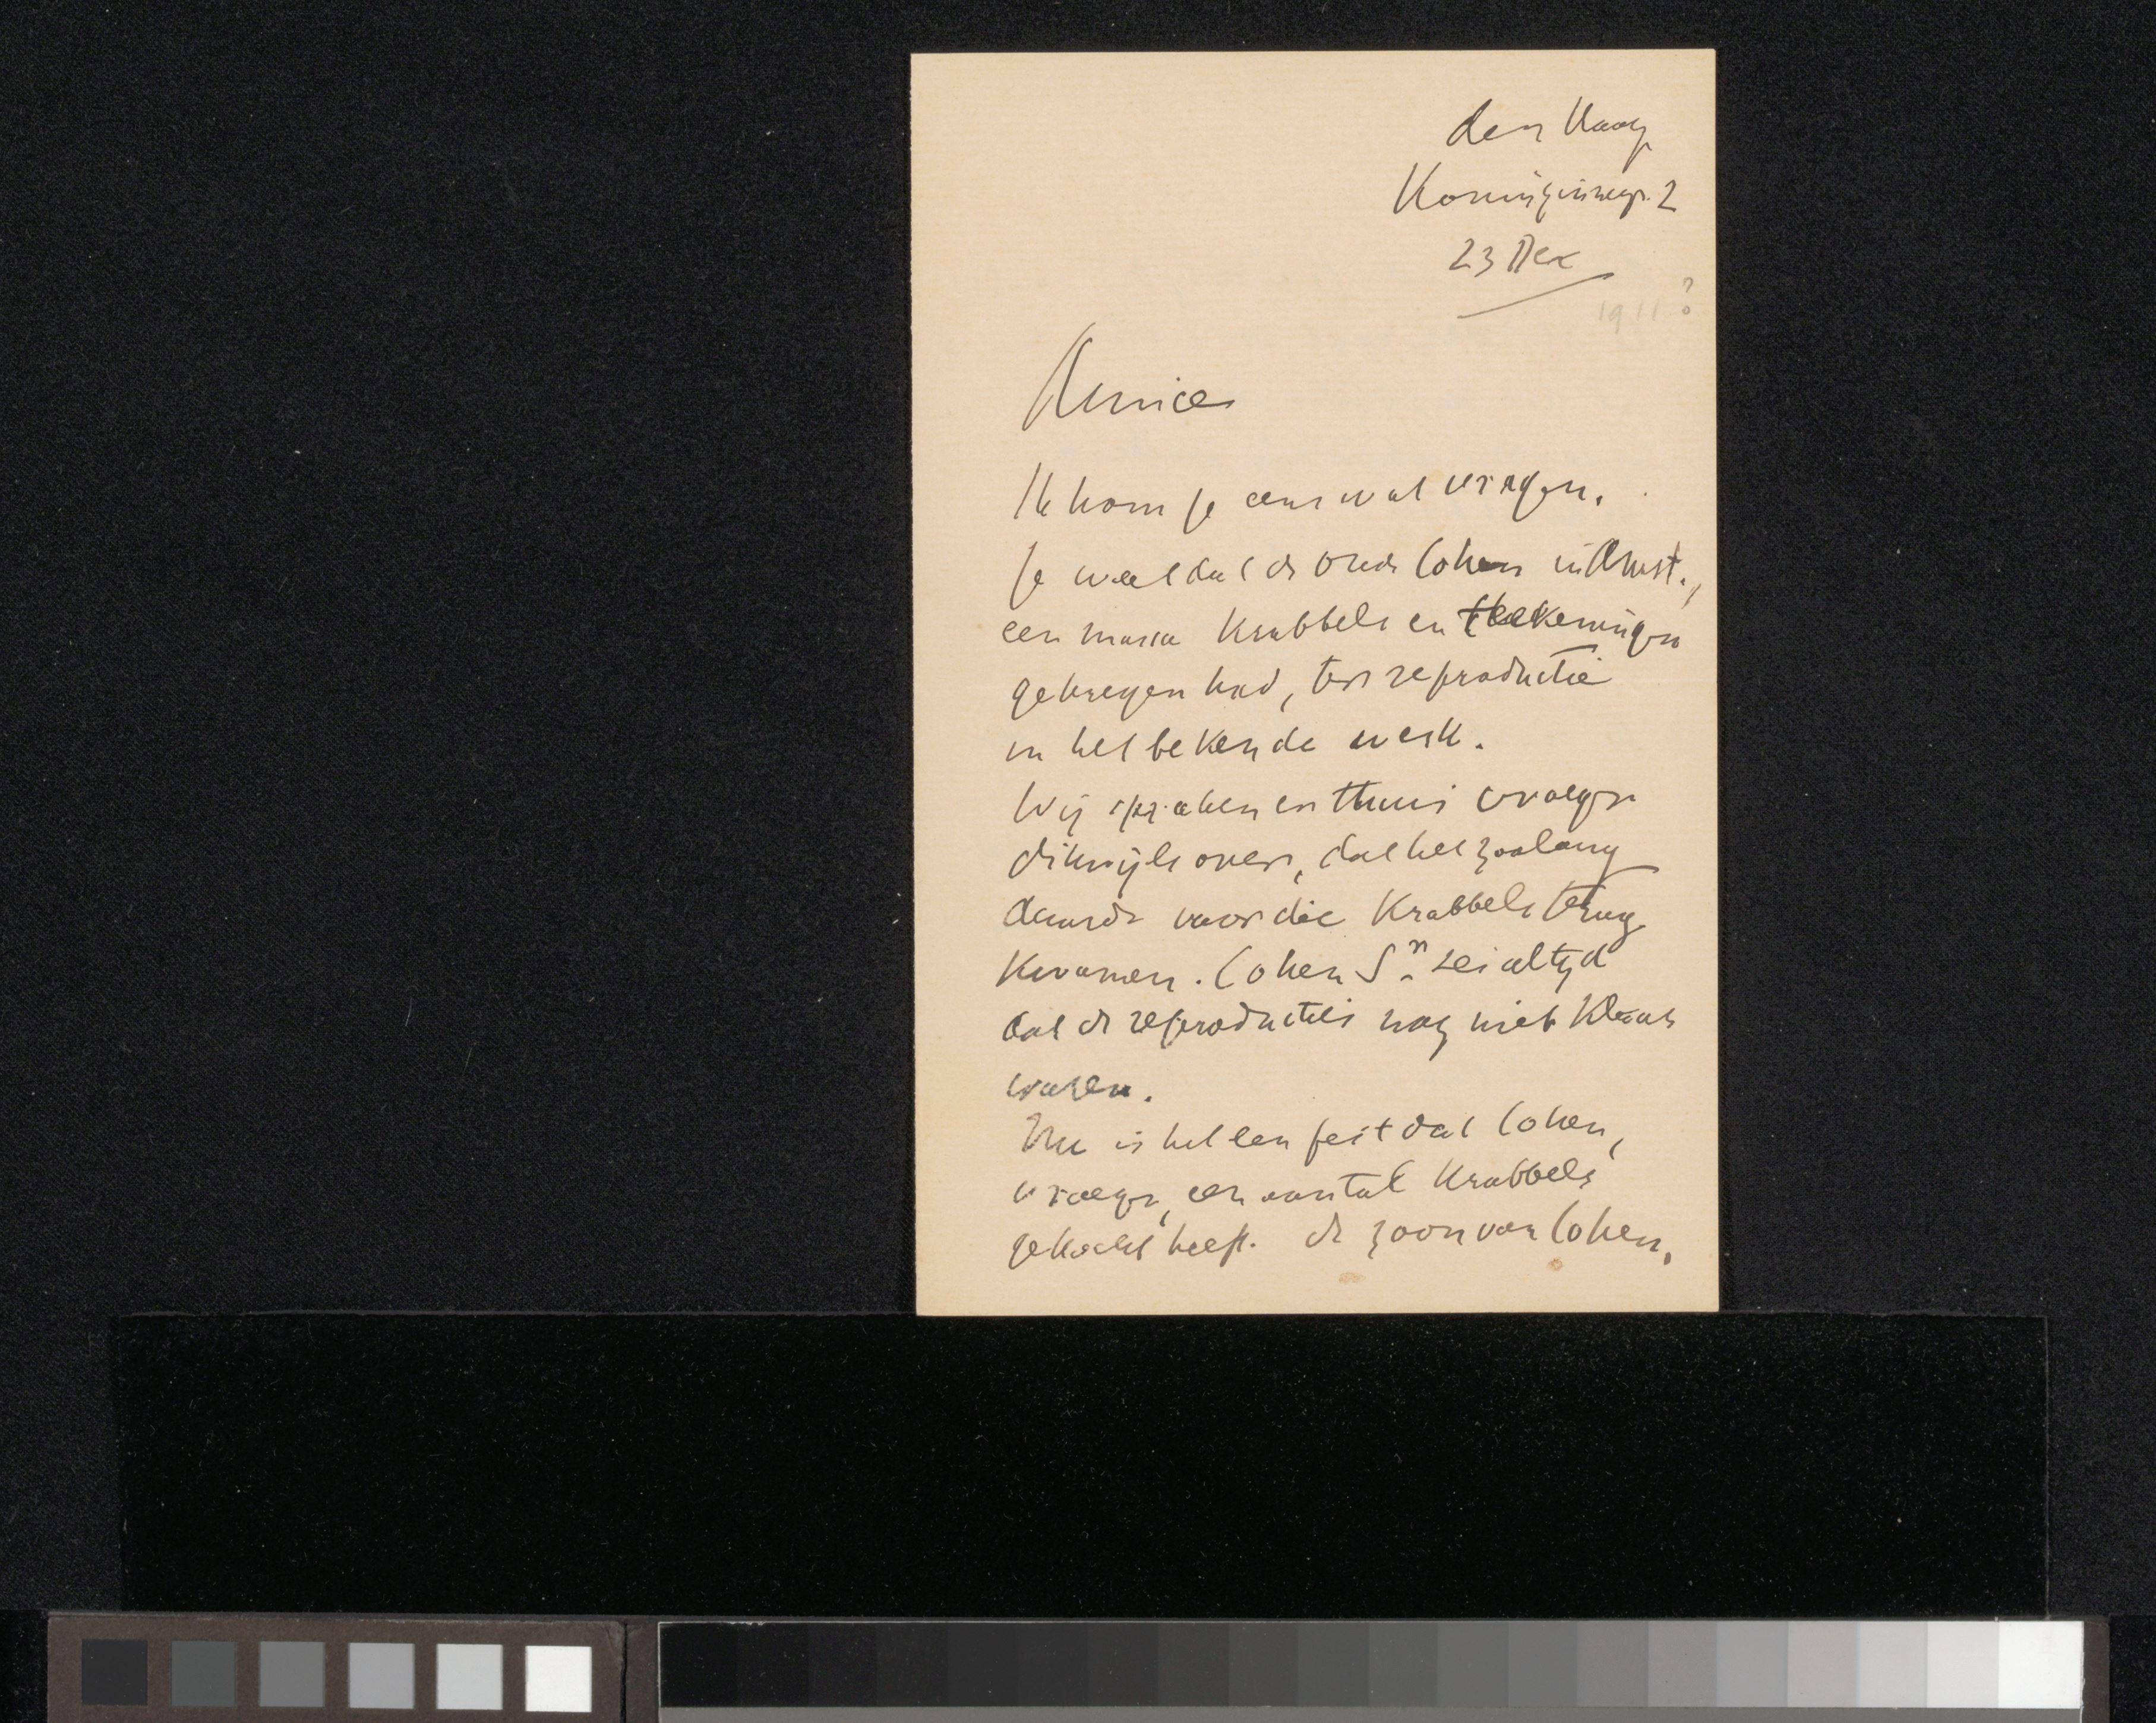 den Haag
Koninginnegr. 2
23 Dec
1911?
Amice
Ik kom je eens wat vragen.
Je weet dat de oude Cohen in Amst.,
een massa Krabbels en teekeningen
gekregen had, ter reproductie
in het bekende werk.
Wij spraken er thuis vroeger
dikwijls over, dat het zoolang
duurde voor die Krabbels terug
kwamen. Cohen Sr. zei altijd
dat de reproducties nog niet klaar
waren.
Nu is het een feit dat Cohen,
vroeger, een aantal Krabbels
gekocht heeft. de zoon van Cohen,